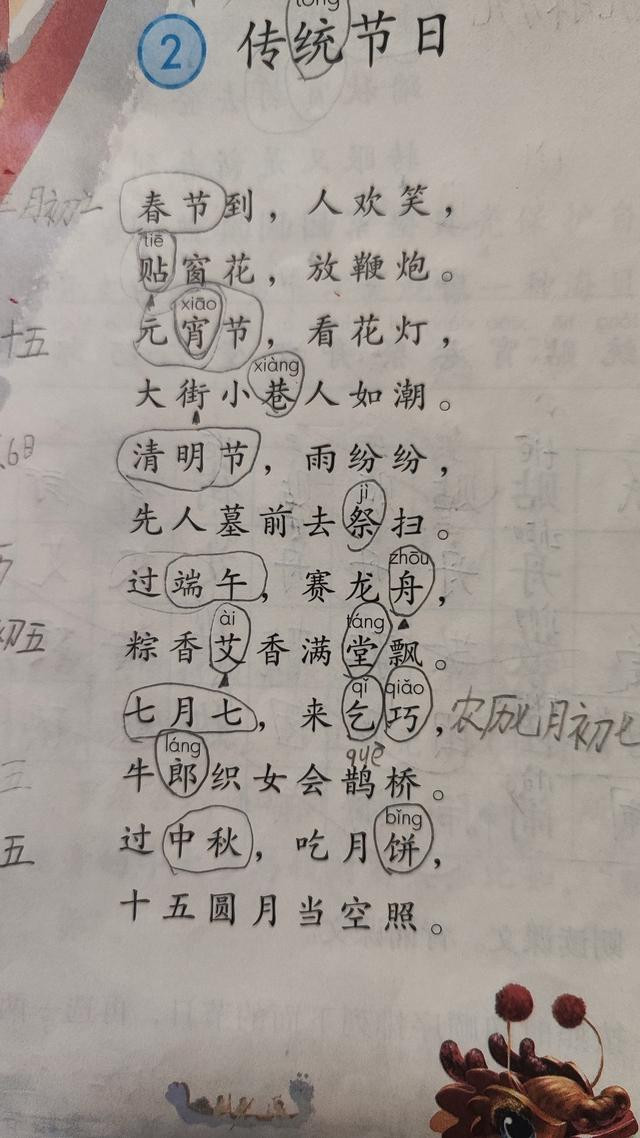 tǒng
2 传统节日
春节到，人欢笑，
tiē
贴窗花，放鞭炮。
xiāo
元宵节，看花灯，
十五
xiàng
大街小巷人如潮。
清明节，雨纷纷，
jì
先人墓前去祭扫。
zhōu
过端午，赛龙舟，
初五
ài táng
粽香艾香满堂飘。
qǐ qiǎo
七月七，来乞巧，农历七月初七
láng què
牛郎织女会鹊桥。
bǐng
过中秋，吃月饼，
五
十五圆月当空照。